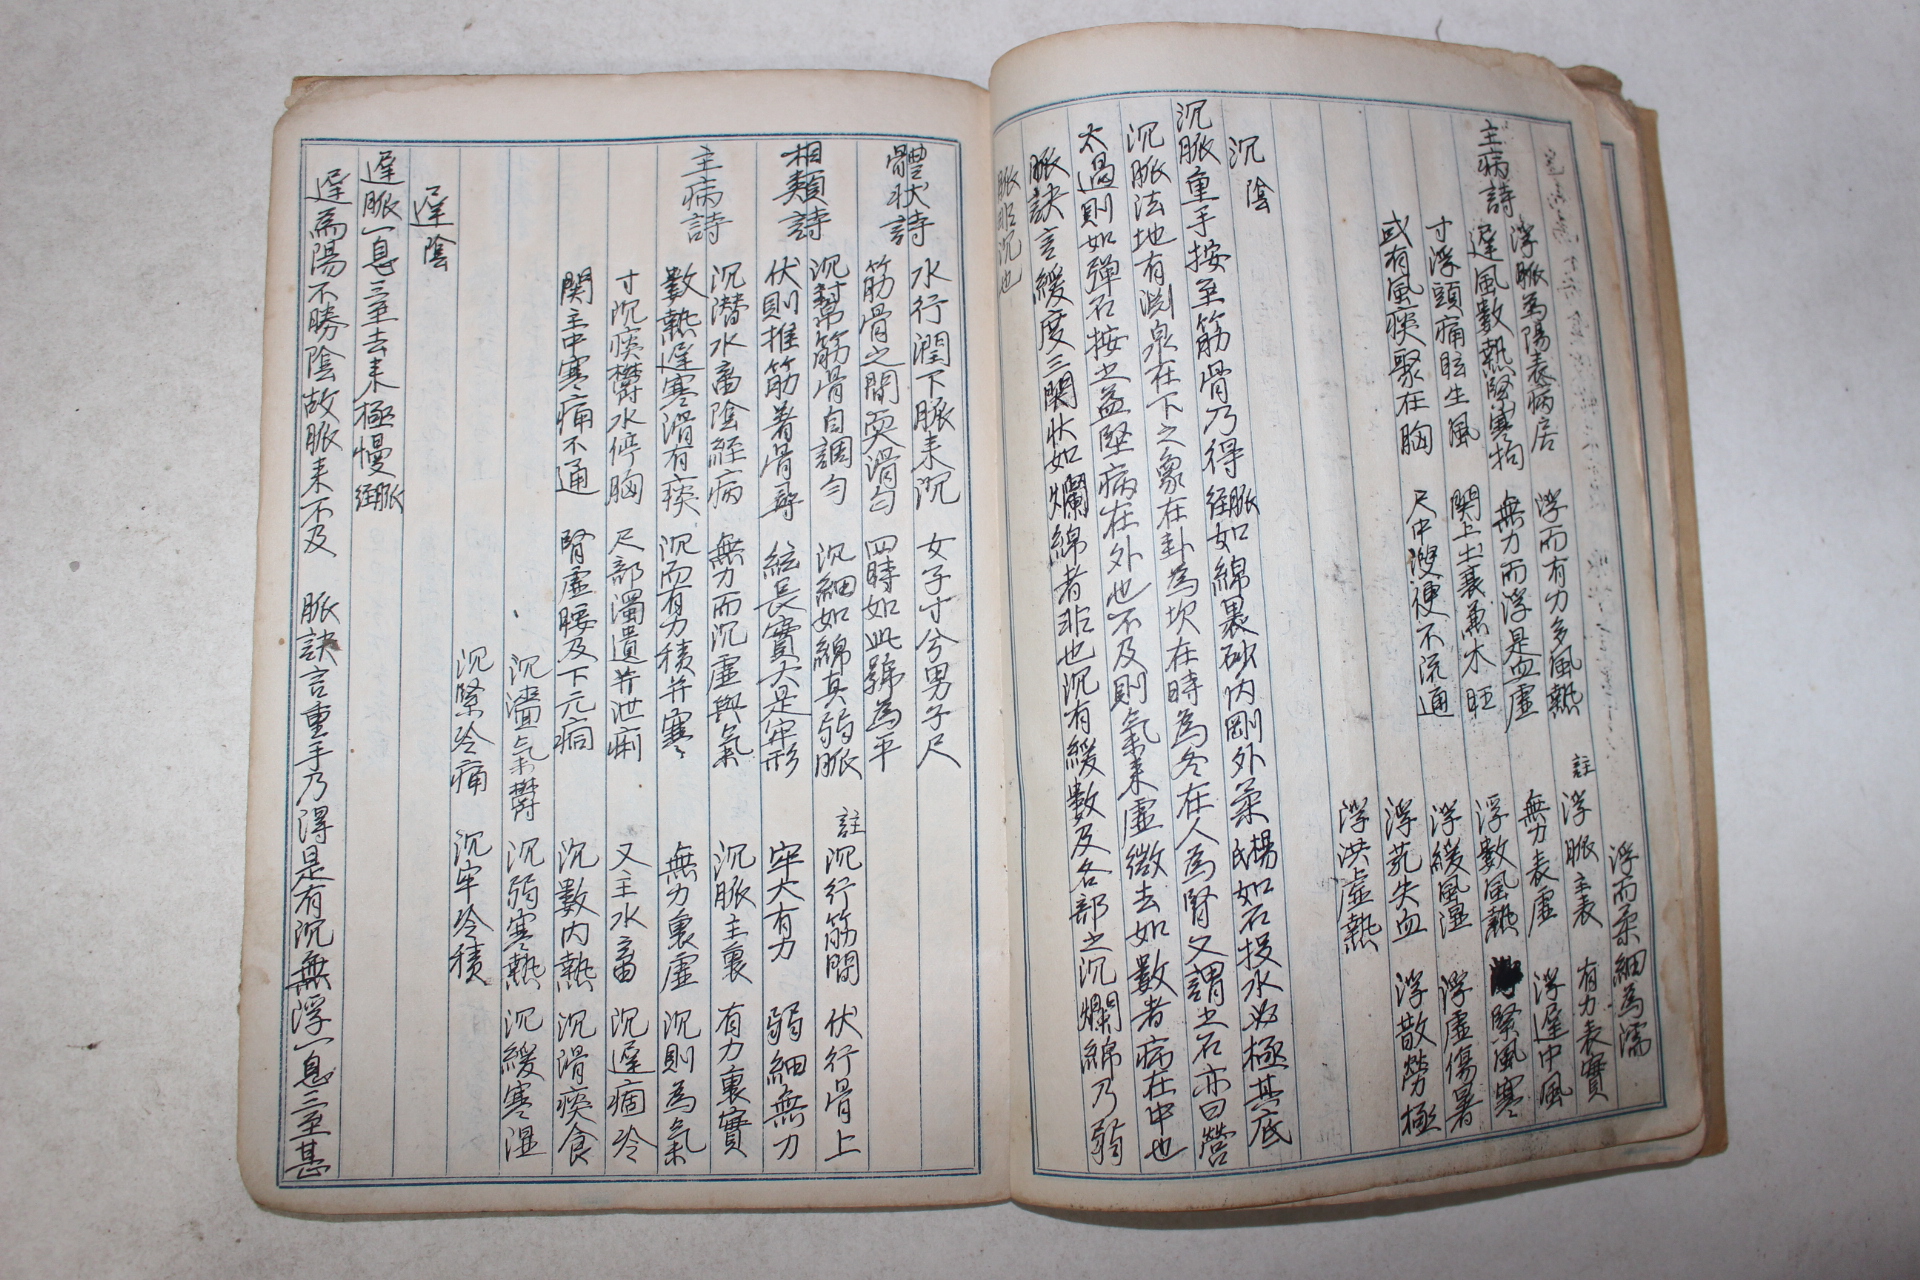 浮而柔細為濡
註 浮脈主表 有力表實
無力表虛 浮遲中風
浮數風熱 緊風寒
浮緩風濕 浮虛傷暑
浮芤失血 浮散勞極
浮洪虛熱
主病詩
浮脈為陽表病居 浮而有力多風熱
遲風數熱緊寒拘 無力而浮是血虛
寸浮頭痛眩生風 関上土衰兼木旺
或有風痰聚在胸 尺中溲便不流通
沉 陰
沉脈重手按至筋骨乃得 脈經 如綿裹砂內剛外柔 楊氏 如石投水必極其底
沉脈法地有淵泉在下之象在卦為坎在時為冬在人為腎又謂之石亦曰營
太過則如彈石按之益堅病在外也不及則氣來虛微去如數者病在中也
脈訣言緩度三関狀如爛綿者非也沉有緩數及各部之沉爛綿乃弱
脈非沉也
體狀詩
水行潤下脈來沉 女子寸兮男子尺
筋骨之間耎滑勻 四時如此號為平
相類詩
沉幫筋骨自調勻 沉細如綿真弱脈
伏則推筋著骨尋 絃長實大是牢形
註 沉行筋間 伏行骨上
牢大有力 弱細無力
主病詩
沉潛水畜陰經病 無力而沉虛與氣
數熱遲寒滑有痰 沉而有力積并寒
寸沉痰欝水停胸 尺部濁遺并泄痢
関主中寒痛不通 腎虛腰及下元痌
沉脈主裏 有力裏實
無力裏虛 沉則為氣
又主水畜 沉遲痼冷
沉數內熱 沉滑痰食
沉濇氣欝 沉弱寒熱 沉緩寒濕
沉緊冷痛 沉牢冷積
遲 陰
遲脈一息三至去來極慢 脈經
遲為陽不勝陰故脈來不及 脈訣言重手乃得是有沉無浮一息三至甚